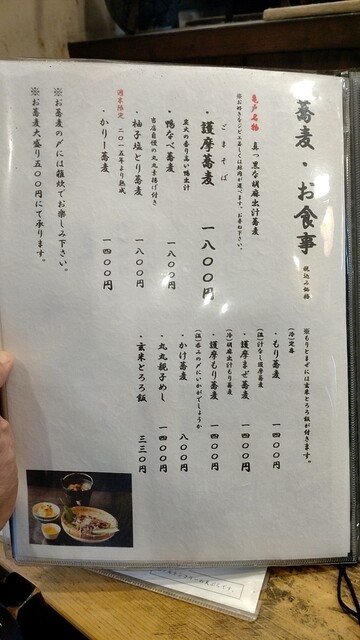 蕎麦・お食事 税込み価格
亀戸名物 真っ黒な胡麻出汁蕎麦
ごまそば
・護摩蕎麦 一八〇〇円
炭火の香り高い鴨出汁
・鴨なべ蕎麦 一八〇〇円
当店自慢の丸丸素揚げ付き
・柚子塩とり蕎麦 一八〇〇円
週末限定 二〇一五年より熟成
・かりー蕎麦 一四〇〇円
※お蕎麦の〆には雑炊でお楽しみ下さい。
※お蕎麦大盛り五〇〇円にて承ります。
※もりとまぜには玄米とろろ飯が付きます。
(冷)定番
・もり蕎麦 一四〇〇円
(温)汁なし護摩蕎麦
・護摩まぜ蕎麦 一四〇〇円
(冷)胡麻出汁もり蕎麦
・護摩もり蕎麦 一四〇〇円
(温)呑みの〆にいかがでしょうか
・かけ蕎麦 八〇〇円
・丸丸親子めし 一四〇〇円
・玄米とろろ飯 三三〇円